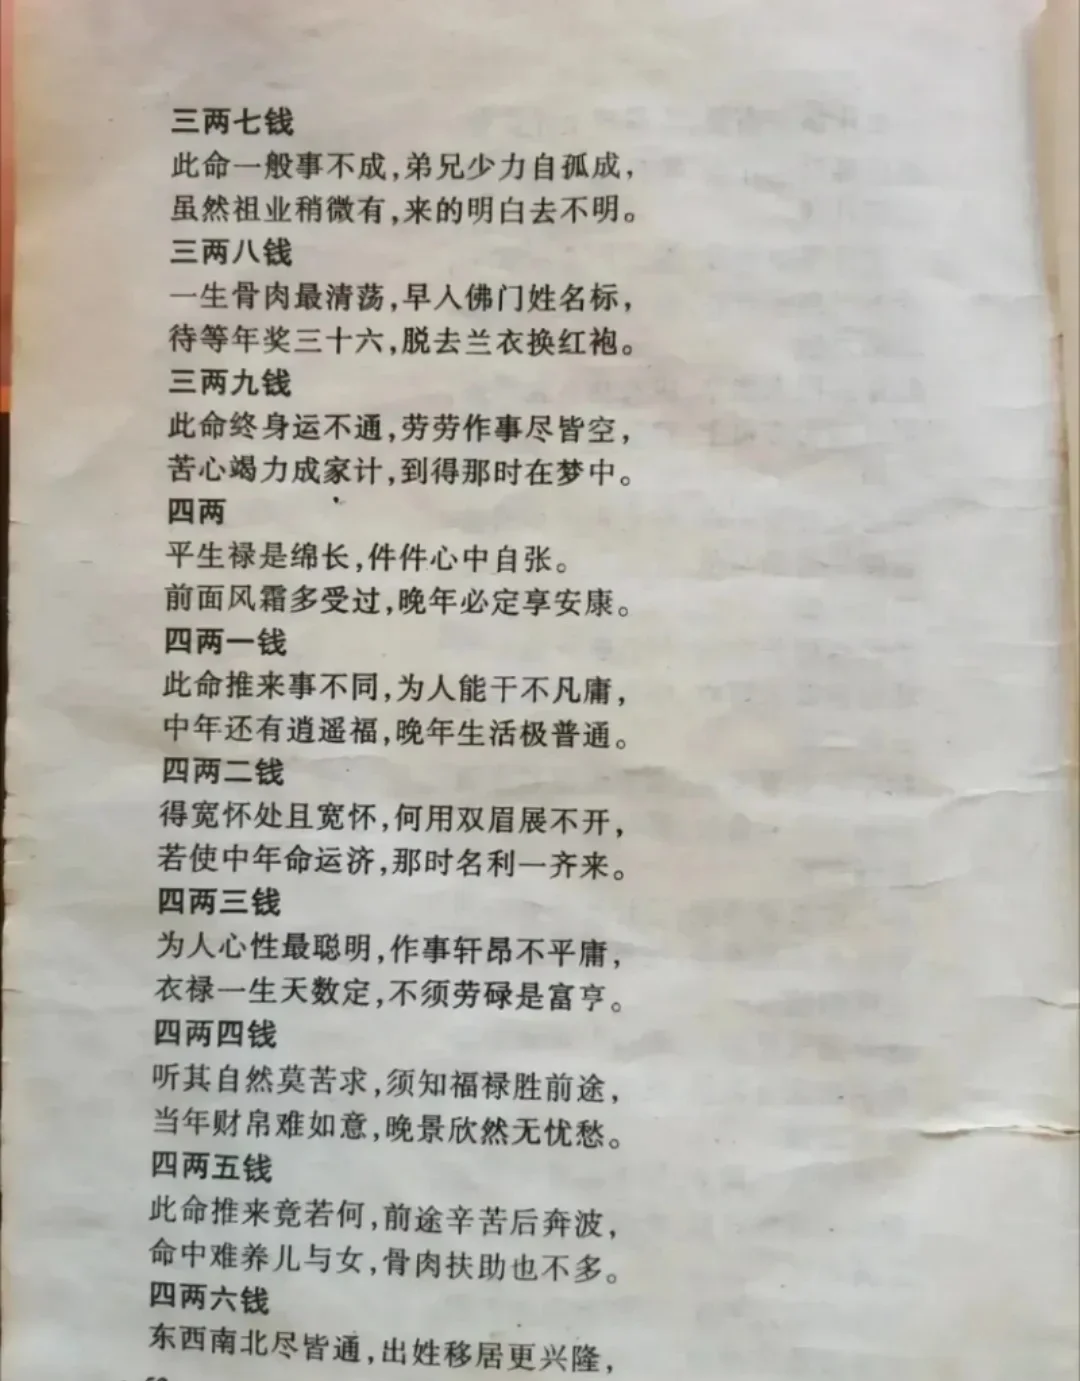 三两七钱
此命一般事不成,弟兄少力自孤成,
虽然祖业稍微有,来的明白去不明。
三两八钱
一生骨肉最清荡,早人佛门姓名标,
待等年奖三十六,脱去兰衣换红袍。
三两九钱
此命终身运不通,劳劳作事尽皆空,
苦心竭力成家计,到得那时在梦中。
四两
平生禄是绵长,件件心中自张。
前面风霜多受过,晚年必定享安康。
四两一钱
此命推来事不同,为人能干不凡庸,
中年还有逍遥福,晚年生活极普通。
四两二钱
得宽怀处且宽怀,何用双眉展不开,
若使中年命运济,那时名利一齐来。
四两三钱
为人心性最聪明,作事轩昂不平庸,
衣禄一生天数定,不须劳碌是富亨。
四两四钱
听其自然莫苦求,须知福禄胜前途,
当年财帛难如意,晚景欣然无忧愁。
四两五钱
此命推来竟若何,前途辛苦后奔波,
命中难养儿与女,骨肉扶助也不多。
四两六钱
东西南北尽皆通,出姓移居更兴隆,